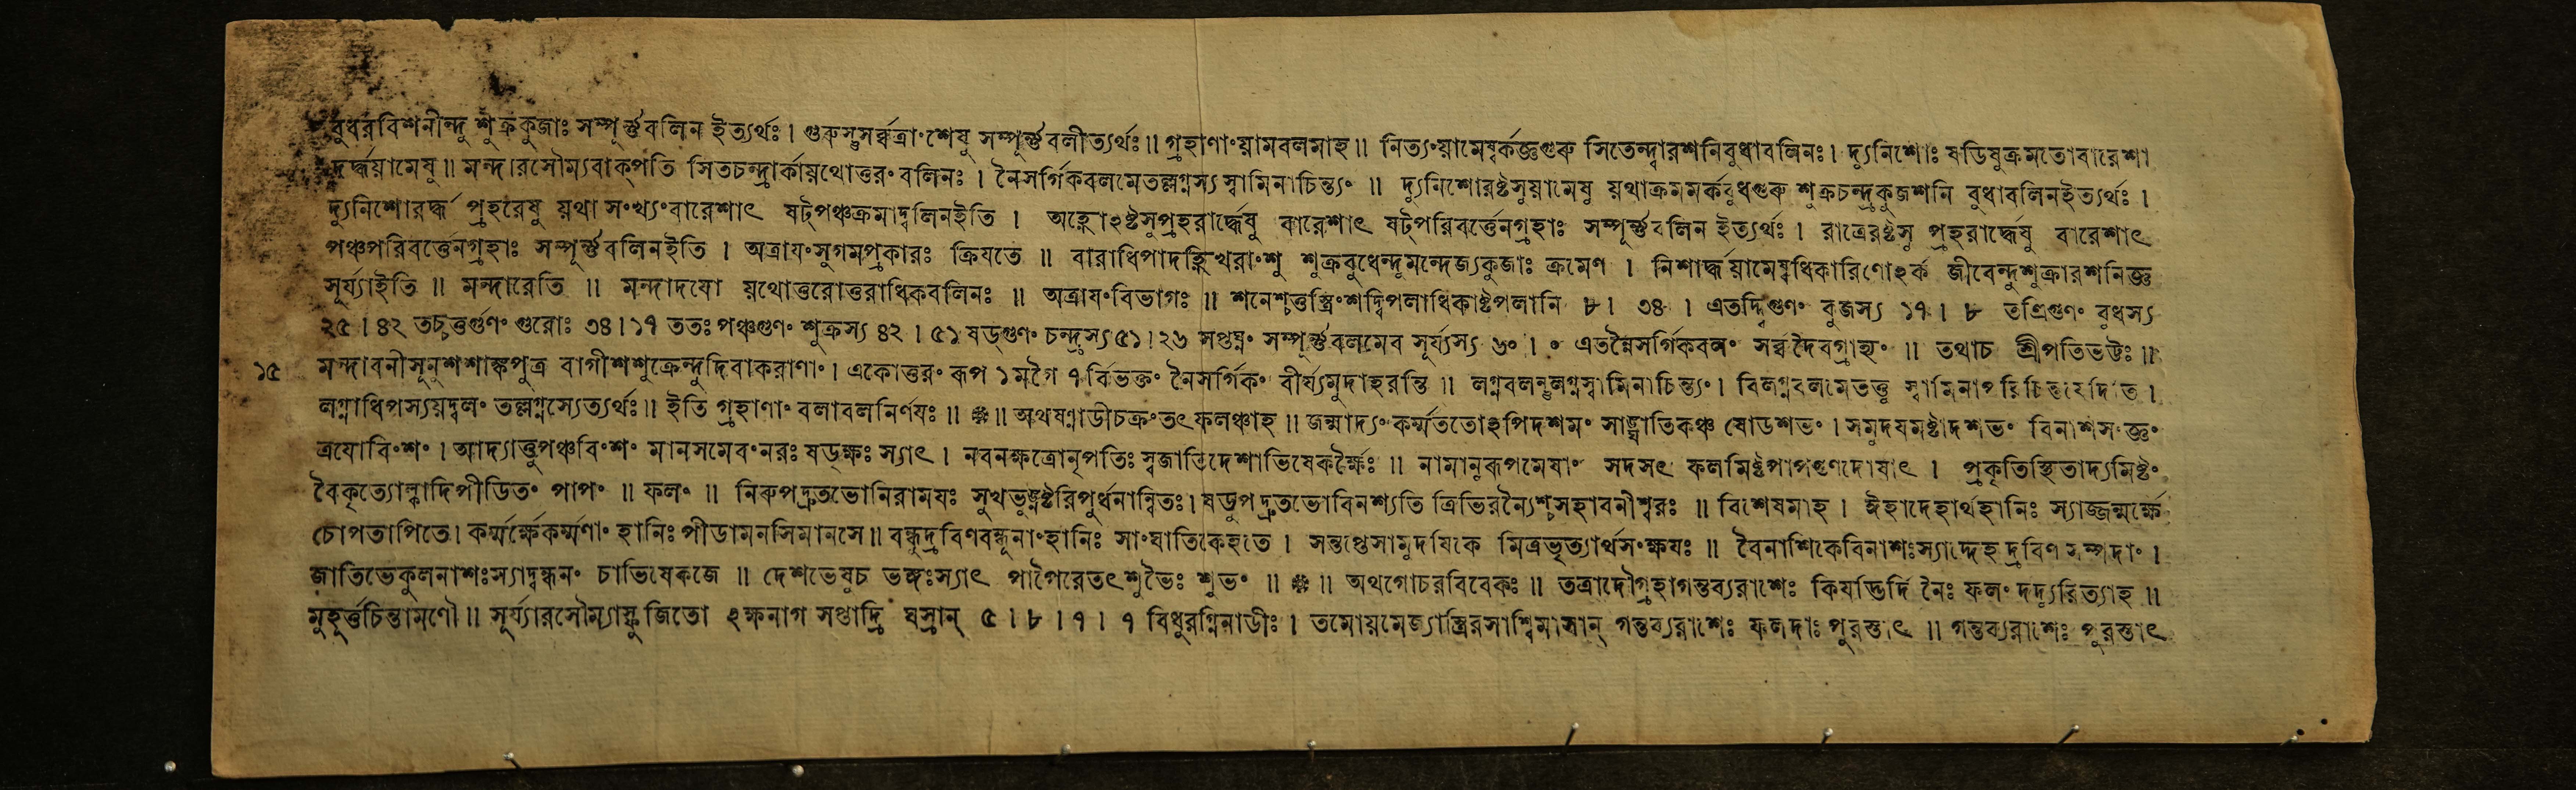 বুধরবিশনীন্দু শুক্রকুজাঃ সম্পূর্ন্নবলিন ইত্যর্থঃ। গুরুস্তুসর্ব্বত্রাংশেষু সম্পূর্ন্নবলীত্যর্থঃ॥ গ্রহাণাংয়ামবলমাহ॥ নিত্যংয়ামেষ্বর্কজ্ঞগুরু সিতেন্দ্বারশনিবুধাবলিনঃ। দ্যুনিশোঃ ষডিষুক্রমতোবারেশা
দর্দ্ধয়ামেষু॥ মন্দারসৌম্যবাক্পতি সিতচন্দ্রার্কায়থোত্তরং বলিনঃ। নৈসর্গিকবলমেতল্লগ্নস্য স্বামিনাচিন্ত্যং॥ দ্যুনিশোরষ্টসুয়ামেষু য়থাক্রমমর্কবুধগুরু শুক্রচন্দ্রকুজশনি বুধাবলিনইত্যর্থঃ।
দ্যুনিশোরর্দ্ধ প্রহরেষু য়থা সংখ্যংবারেশাৎ ষট্পঞ্চক্রমাদ্বলিনইতি। অহ্নোঽষ্টসুপ্রহরার্দ্ধেষু বারেশাৎ ষট্পরিবর্ত্তেনগ্রহাঃ সম্পূর্ন্নবলিন ইত্যর্থঃ। রাত্রেরষ্টসু প্রহরার্দ্ধেষু বারেশাৎ
পঞ্চপরিবর্ত্তেনগ্রহাঃ সম্পূর্ন্নবলিনইতি। অত্রাযংসুগমপ্রকারঃ ক্রিযতে॥ বারাধিপাদহ্নিখরাংশু শুক্রবুধেন্দুমন্দেজ্যকুজাঃ ক্রমেণ। নিশার্দ্ধয়ামেষ্বধিকারিণোঽর্ক জীবেন্দুশুক্রারশনিজ্ঞ
সূর্য্যাইতি॥ মন্দারেতি॥ মন্দাদযো য়থোত্তরোত্তরাধিকবলিনঃ॥ অত্রাযংবিভাগঃ॥ শনেশ্চতুস্ত্রিংশদ্বিপলাধিকাষ্টপলানি ৮। ৩৪। এতদ্দ্বিগুণং কুজস্য ১৭। ৮ তত্রিগুণং বুধস্য
২৫। ৪২ তচ্চতুর্গুণং গুরোঃ ৩৪।১৭ ততঃ পঞ্চগুণং শুক্রস্য ৪২। ৫১ ষড্গুণং চন্দ্রস্য ৫১। ২৬ সপ্তঘ্নং সম্পূর্ন্নবলমেব সূর্য্যস্য ৬০। ০ এতন্নৈসর্গিকবলং সর্ব্বদৈবগ্রাহ্যং॥ তথাচ শ্রীপতিভট্টঃ॥
১৫ মন্দাবনীসূনুশশাঙ্কপুত্র বাগীশশুক্রেন্দুদিবাকরাণাং। একোত্তরং রূপ ১মগৈ ৭র্বিভক্তং নৈসর্গিকং বীর্য্যমুদাহরন্তি॥ লগ্নবলন্তুলগ্নস্বামিনাচিন্ত্যং। বিলগ্নবলমেতত্তু স্বামিনাপরিচিন্তয়েদিতি।
লগ্নাধিপস্যয়দ্বলং তল্লগ্নস্যেত্যর্থঃ॥ ইতি গ্রহাণাং বলাবলনির্ণযঃ॥ ※॥ অথষণ্নাডীচক্রংতৎফলঞ্চাহ॥ জন্মাদ্যংকর্ম্মততোঽপিদশমং সাঙ্ঘাতিকঞ্চ ষোডশভং। সমুদযমষ্টাদশভং বিনাশসংজ্ঞং
ত্রযোবিংশং। আদ্যাত্তুপঞ্চবিংশং মানসমেবংনরঃ ষড্ক্ষঃ স্যাৎ। নবনক্ষত্রোনৃপতিঃ স্বজাতিদেশাভিষেকর্ক্ষৈঃ॥ নামানুরূপমেষাং সদসৎ ফলমিষ্টপাপগুণদোষাৎ। প্রকৃতিস্থিতাদ্যমিষ্টং
বৈকৃত্যোল্কাদিপীডিতং পাপং॥ ফলং॥ নিরুপদ্রুতভোনিরামযঃ সুখভুঙ্নষ্টরিপুর্ধনান্বিতঃ। ষডুপদ্রুতভোবিনশ্যতি ত্রিভিরন্যৈশ্চসহাবনীশ্বরঃ॥ বিশেষমাহ। ঈহাদেহার্থহানিঃ স্যাজ্জন্মর্ক্ষে
চোপতাপিতে। কর্ম্মর্ক্ষেকর্ম্মণাং হানিঃ পীডামনসিমানসে॥ বন্ধুদ্রবিণবন্ধূনাংহানিঃ সাংঘাতিকেহতে। সন্তপ্তেসামুদযিকে মিত্রভৃত্যার্থসংক্ষযঃ॥ বৈনাশিকেবিনাশঃস্যাদ্দেহ দ্রবিণ সম্পদাং।
জাতিভেকুলনাশঃস্যাদ্বন্ধনং চাভিষেকজে॥ দেশভেষুচ ভঙ্গঃস্যাৎ পাপৈরেতৎ শুভৈঃ শুভং॥ ※॥ অথগোচরবিবেকঃ॥ তত্রাদৌগ্রহাগন্তব্যরাশেঃ কিযদ্ভির্দি নৈঃ ফলং দদ্যুরিত্যাহ॥
মুহূর্ত্তচিন্তামণৌ॥ সূর্য্যারসৌম্যাস্ফু জিতো ঽক্ষনাগ সপ্তাদ্রি ঘস্রান্ ৫। ৮। ৭। ৭ বিধুরগ্নিনাডীঃ। তমোয়মেজ্যাস্ত্রিরসাশ্বিমাসান্ গন্তব্যরাশেঃ ফলদাঃ পুরস্তাৎ॥ গন্তব্যরাশেঃ পুরস্তাৎ